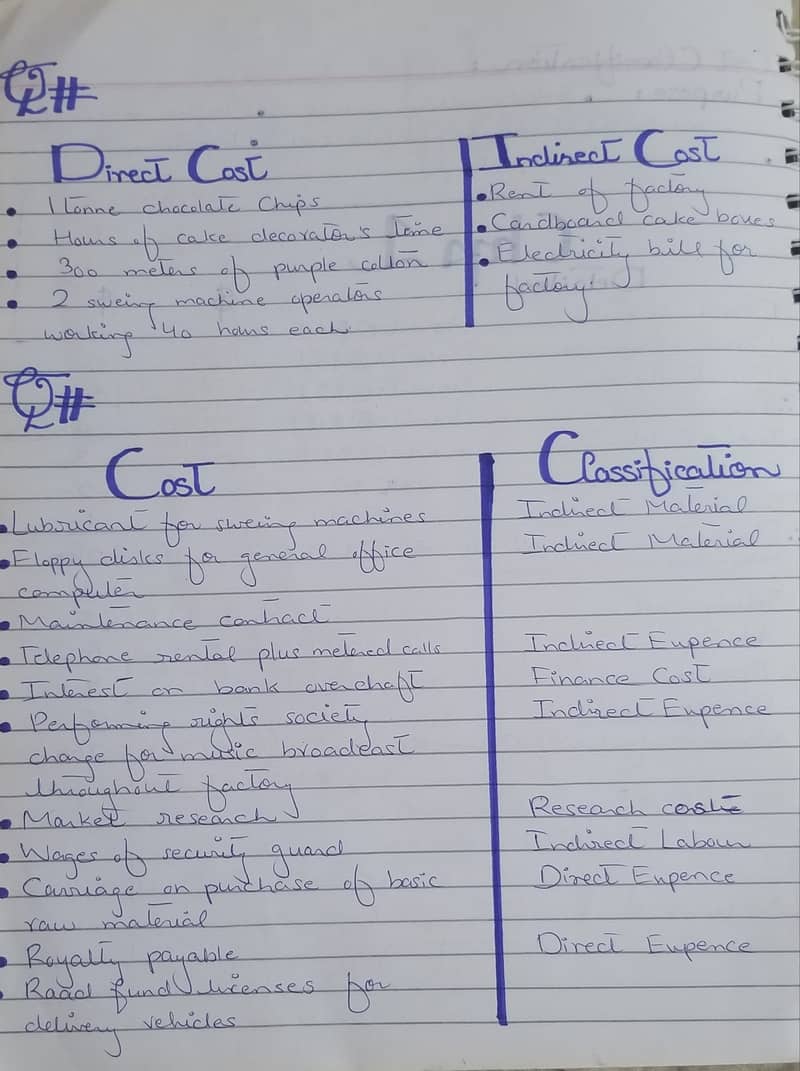 Q#
Direct Cost
• 1 tonne chocolate Chips
• Hours of cake decorator's time
• 300 meters of purple cotton
• 2 sweing machine operators
working 40 hours each.
Indirect Cost
• Rent of factory
• Cardboard cake boxes
• Electricity bill for
factory.
Q#
Cost
• Lubricant for sweing machines
• Floppy disks for general office
computer
• Maintenance contract
• Telephone rental plus metered calls
• Interest on bank overdraft
• Performing rights society
charge for music broadcast
throughout factory
• Market research
• Wages of security guard
• Carriage on purchase of basic
raw material
• Royalty payable
• Road fund licenses for
delivery vehicles
Classification
Indirect Material
Indirect Material
Indirect Expence
Finance Cost
Indirect Expence
Research costs
Indirect Labour
Direct Expence
Direct Expence